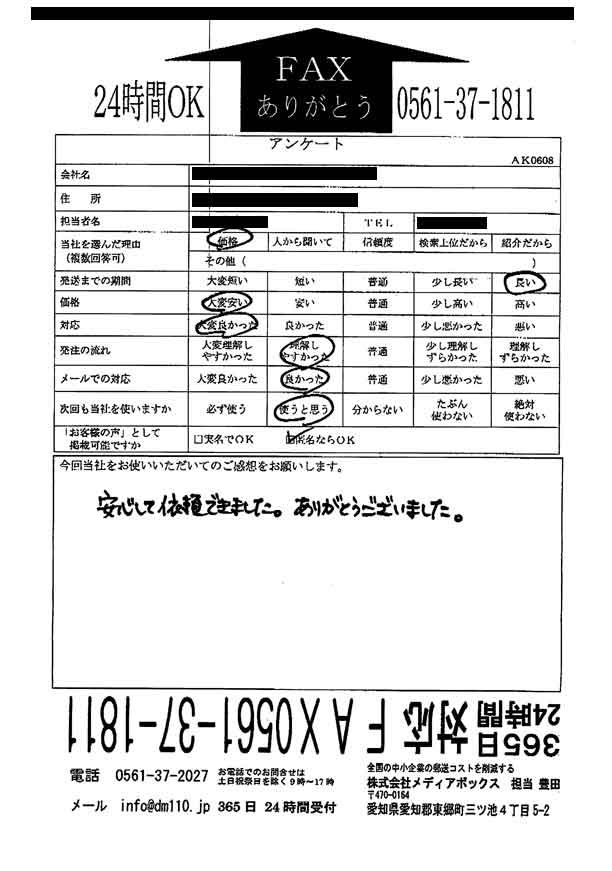 24時間OK
FAX
ありがとう
0561-37-1811
アンケート
AK0608
会社名
住 所
担当者名 TEL
当社を選んだ理由 (複数回答可) 価格 人から聞いて 信頼度 検索上位だから 紹介だから
その他 ( )
発送までの期間 大変短い 短い 普通 少し長い 長い
価格 大変安い 安い 普通 少し高い 高い
対応 大変良かった 良かった 普通 少し悪かった 悪い
発注の流れ 大変理解しやすかった 理解しやすかった 普通 少し理解しずらかった 理解しずらかった
メールでの対応 大変良かった 良かった 普通 少し悪かった 悪い
次回も当社を使いますか 必ず使う 使うと思う 分からない たぶん使わない 絶対使わない
「お客様の声」として掲載可能ですか □実名でOK □匿名ならOK
今回当社をお使いいただいてのご感想をお願いします。
安心して依頼できました。ありがとうございました。
365日24時間対応 FAX0561-37-1811
電話 0561-37-2027 お電話でのお問合せは土日祝祭日を除く9時~17時
メール info@dm110.jp 365日 24時間受付
全国の中小企業の郵送コストを削減する
株式会社メディアボックス 担当 豊田
〒470-0154
愛知県愛知郡東郷町三ツ池4丁目5-2